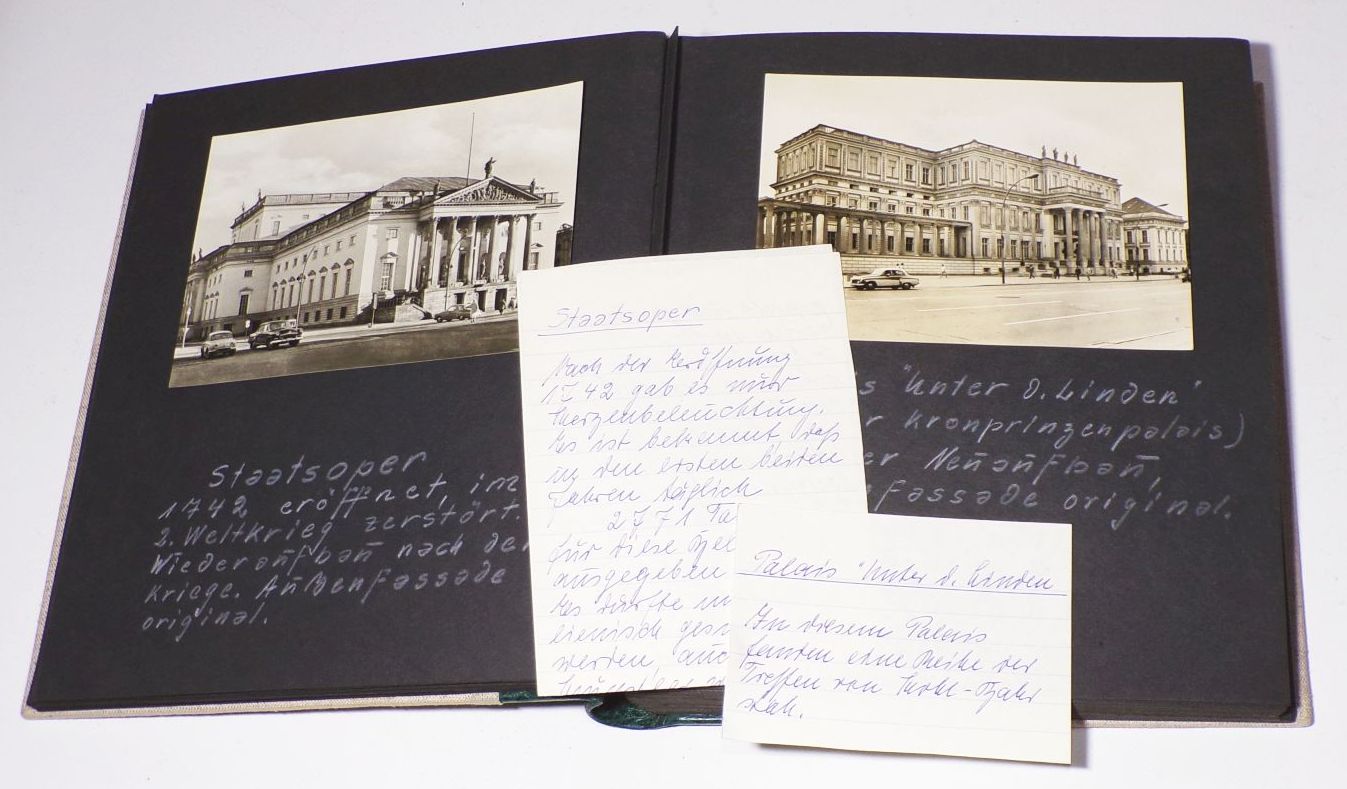 Staatsoper
1742 eröffnet, im
2. Weltkrieg zerstört.
Wiederaufbau nach dem
Kriege. Außenfassade
original.
Staatsoper
Nach der Eröffnung
1742 gab es nur
Kerzenbeleuchtung.
Es ist bekannt, daß
in den ersten beiden
Jahren täglich
2771 Ta
für diese
ausgegeben
Es durfte
lienisch
werden,
s "Unter d. Linden"
r Kronprinzenpalais)
er Neuaufbau,
fassade original.
Palais "Unter d. Linden
In diesem Palais
fanden eine Reihe der
Treffen von Kohl-Bahr
statt.